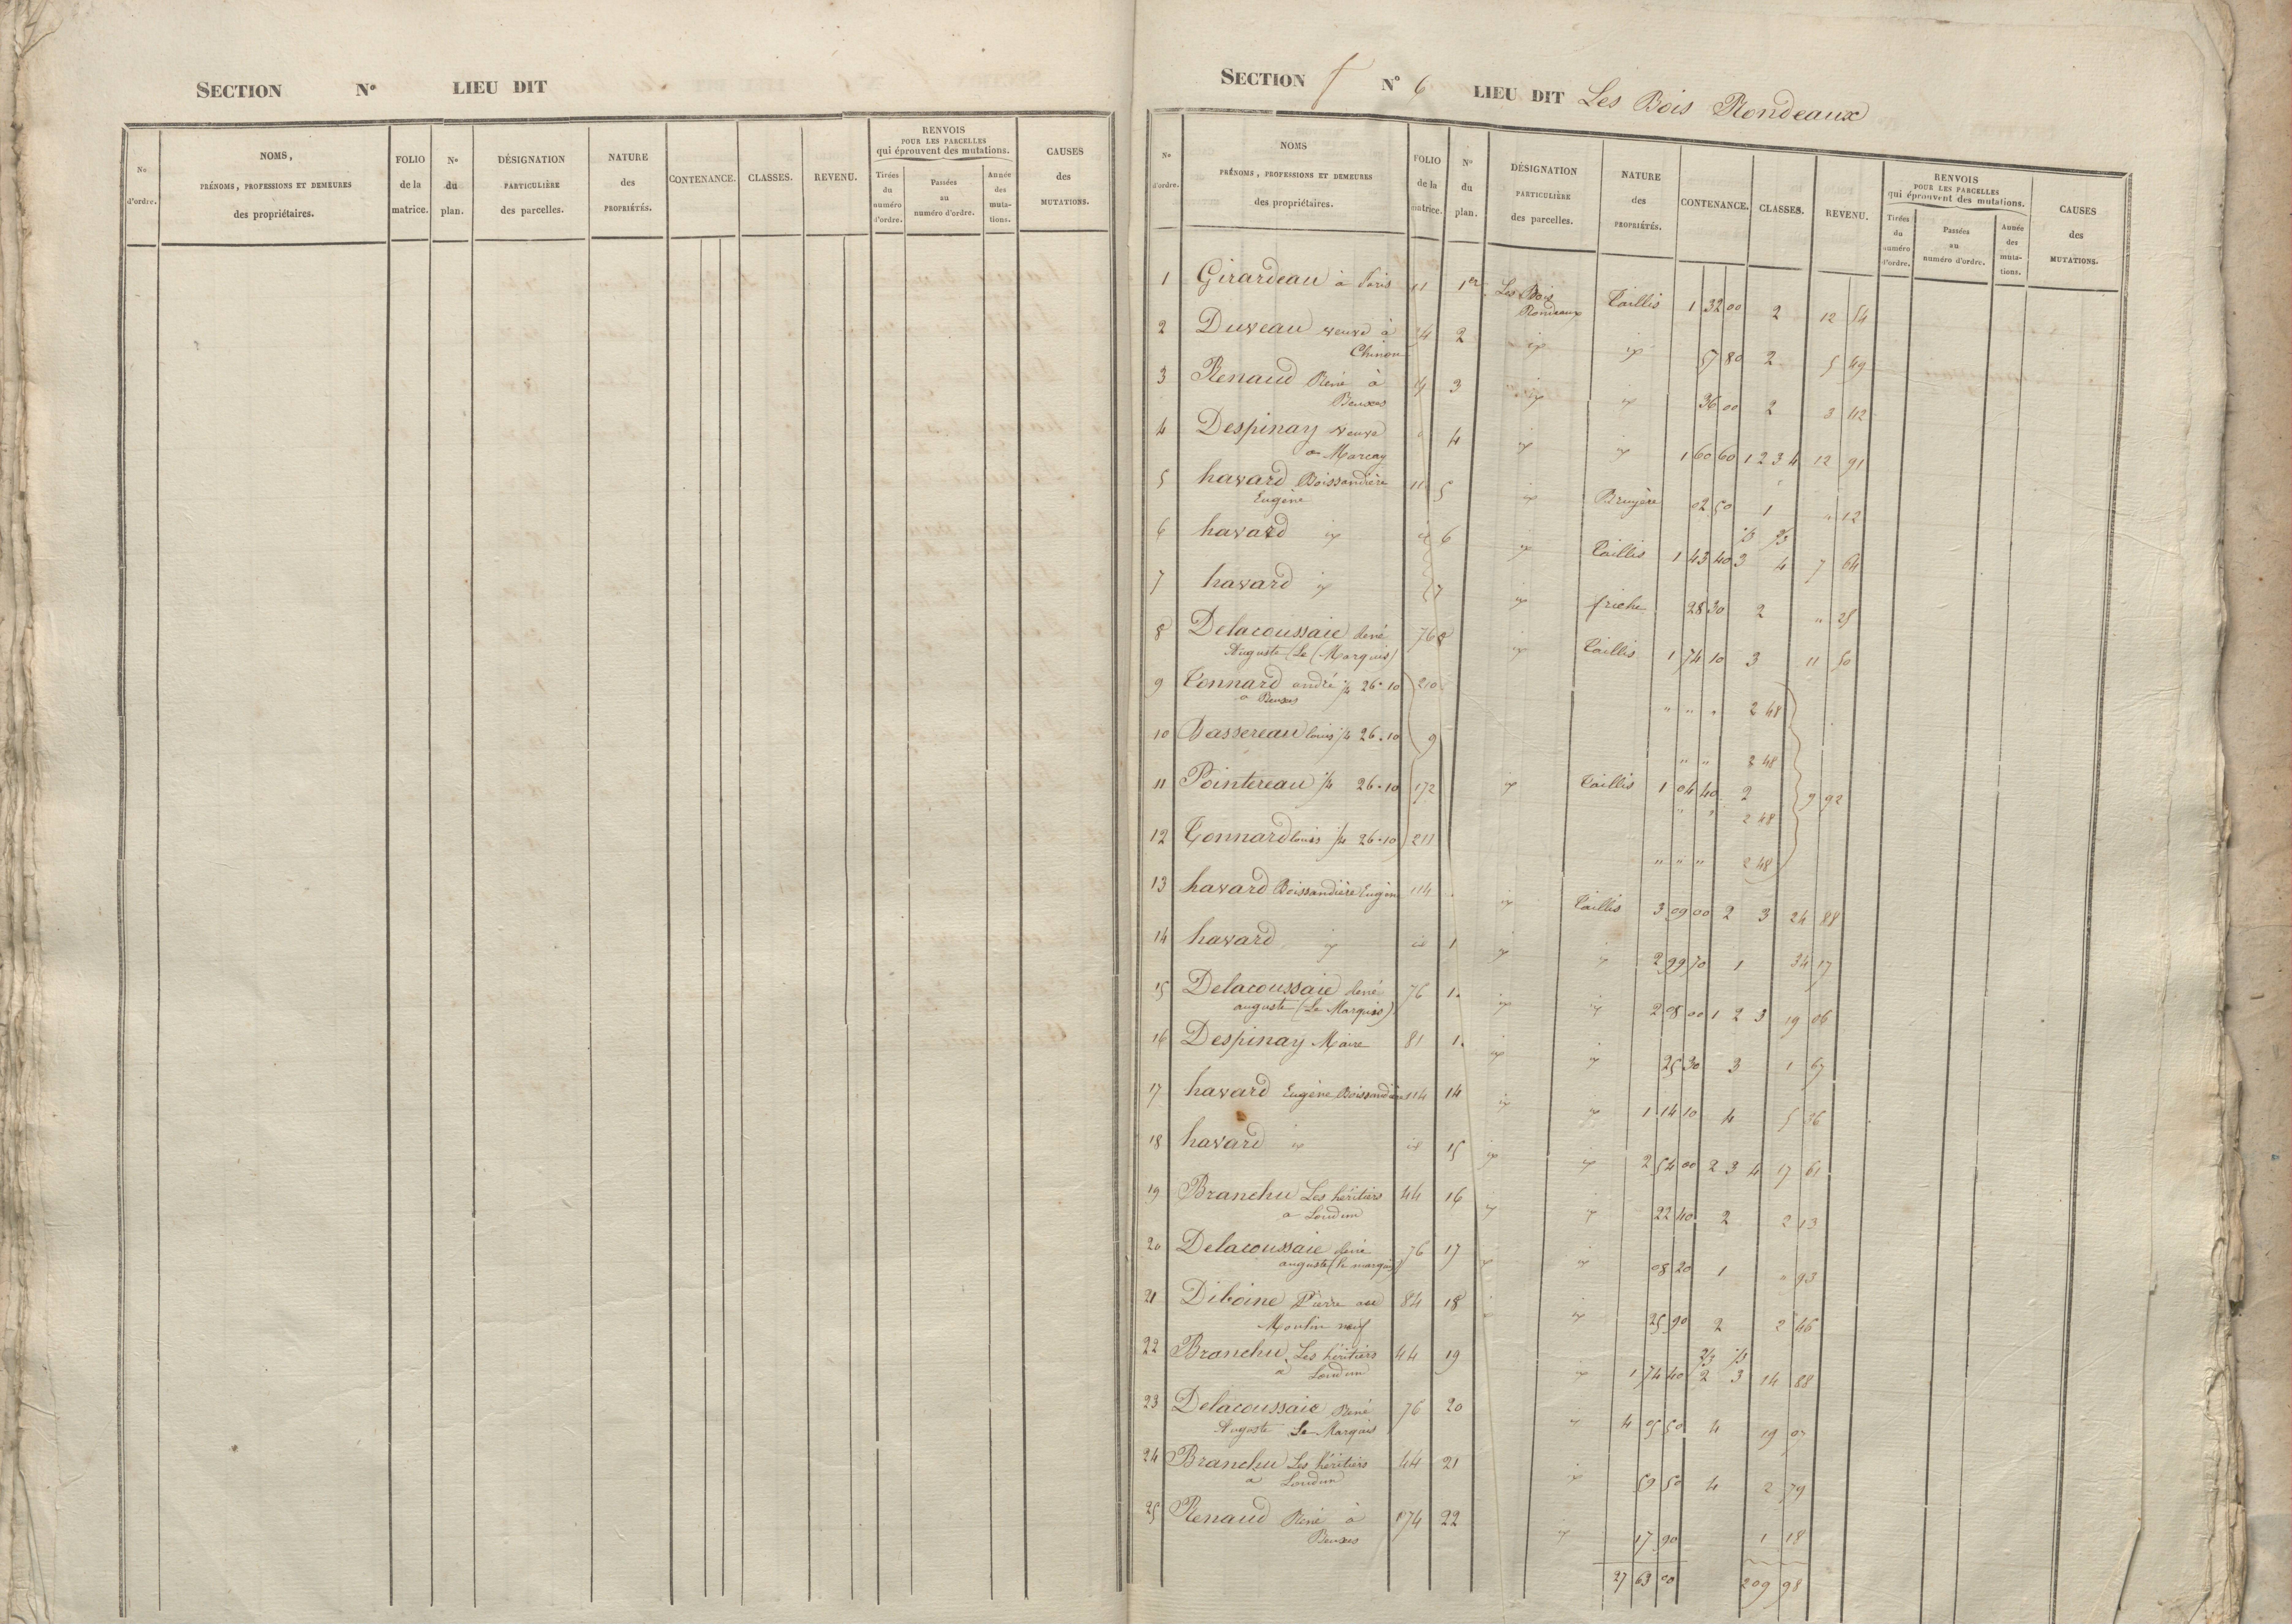 SECTION N° LIEU DIT
N° d'ordre.
NOMS, PRÉNOMS, PROFESSIONS ET DEMEURES des propriétaires.
FOLIO de la matrice.
N° du plan.
DÉSIGNATION PARTICULIÈRE des parcelles.
NATURE des PROPRIÉTÉS.
CONTENANCE.
CLASSES.
REVENU.
RENVOIS POUR LES PARCELLES qui éprouvent des mutations.
Tirées du numéro d'ordre.
Passées au numéro d'ordre.
Année des mutations.
CAUSES des MUTATIONS.
SECTION f N° 6 LIEU DIT Les Bois Rondeaux
N° d'ordre.
NOMS PRÉNOMS, PROFESSIONS ET DEMEURES des propriétaires.
FOLIO de la matrice.
N° du plan.
DÉSIGNATION PARTICULIÈRE des parcelles.
NATURE des PROPRIÉTÉS.
CONTENANCE.
CLASSES.
REVENU.
RENVOIS POUR LES PARCELLES qui éprouvent des mutations.
Tirées du numéro d'ordre.
Passées au numéro d'ordre.
Année des mutations.
CAUSES des MUTATIONS.
1 Girardeau à Paris 11 1er Les Bois Rondeaux Taillis 1 32 00 2 12 54
2 Duveau veuve à 2 57 80 2 5 49
Chinon
3 Renaud René à 3 36 00 2 3 42
Beuxes
4 Despinay veuve 4 1 60 60 1 2 3 4 12 91
a Marcay
5 havard Boissandière 5 Bruyère 02 50 1 " 12
Eugène
6 havard 6 Taillis 1 43 40 1/3 3 2/3 4 7 64
7 havard 7 friche 28 30 2 " 28
8 Delacoussaie René 76 8 Taillis 1 74 10 3 11 50
Auguste (Le Marquis)
9 Tonnard andré 1/4 26.10 210 " " " 2 48
a Beuxes
10 Bassereau louis 1/4 26.10 9 " " 2 48
11 Pointereau 1/4 26.10 172 Taillis 1 04 40 2 9 92
" " 2 48
12 Tonnard louis 1/4 26.10 211 " " " 2 48
13 havard Boissandière Eugène 114 Taillis 3 09 00 2 3 24 88
14 havard 1 2 99 70 1 34 17
15 Delacoussaie René 76 1 2 08 00 1 2 3 19 06
auguste (Le Marquis)
16 Despinay Maire 81 1 25 30 3 1 67
17 havard Eugène Boissandière 114 14 1 14 10 4 5 36
18 havard 15 2 54 00 2 3 4 17 61
19 Branchu Les héritiers 44 16 22 40 2 2 13
a Loudun
20 Delacoussaie René 76 17 08 20 1 " 93
auguste (le marquis)
21 Diboine Pierre au 84 18 25 90 2 2 46
Moulin neuf
22 Branchu Les héritiers 44 19 1 74 40 2/3 2 1/3 3 14 88
a Loudun
23 Delacoussaie René 76 20 4 05 50 4 19 07
Auguste Le Marquis
24 Branchu Les héritiers 44 21 59 50 4 2 79
a Loudun
25 Renaud René à 174 22 17 90 1 18
Beuxes
27 63 00 209 98